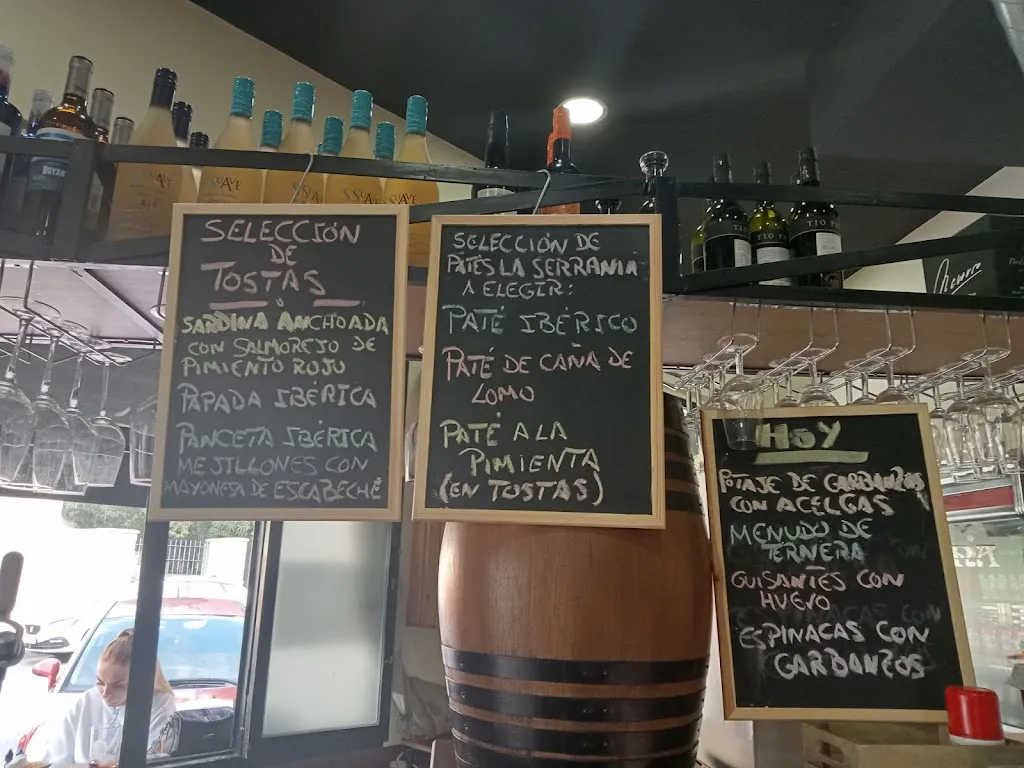 SELECCIÓN
DE
TOSTAS
SARDINA ANCHOADA
CON SALMOREJO DE
PIMIENTO ROJO
PAPADA IBÉRICA
PANCETA IBÉRICA
MEJILLONES CON
MAYONESA DE ESCABECHE
SELECCIÓN DE
PATÉS LA SERRANIA
A ELEGIR:
PATÉ IBÉRICO
PATÉ DE CAÑA DE
LOMO
PATÉ A LA
PIMIENTA
(EN TOSTAS)
HOY
POTAJE DE GARBANZOS
CON ACELGAS
MENUDO DE
TERNERA
GUISANTES CON
HUEVO
ESPINACAS CON
GARBANZOS